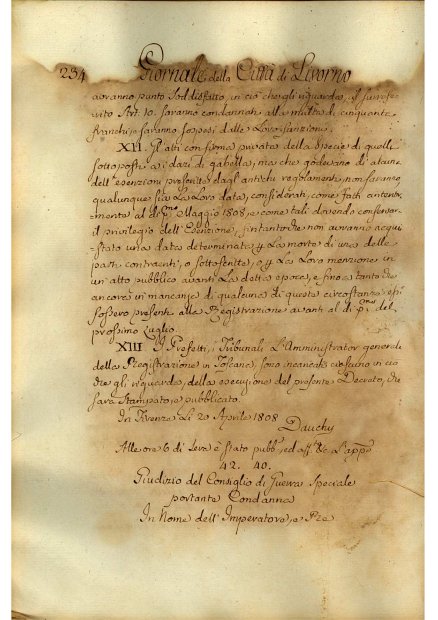 234 Giornale della Città di Livorno
avranno punto Soddisfatto, in ciò che gli riguarda, il surrife-
rito Art. 10. saranno condannati alla multa di cinquanta
franchi, e saranno sospesi dalle Loro funzioni.
XII. Gl'atti con firma privata della Specie di quelli
sottoposti ai dazi di gabella, ma che godevano di alcune
dell'esenzioni presente dagl'antichi regolamenti non saranno
qualunque sia La Loro data, considerati, come fatti anterior-
mente al dì p.mo Maggio 1808, e come tali dovendo conservar
il privilegio dell'Esenzione, fintantoche non avranno acqui-
stato una data determinata, p. La morte di una delle
parti contraenti, o sottoscritte, o p. La Loro menzione in
un'atto pubblico avanti La detta epoca, e fino a tanto che
ancora in mancanza di qualcuna di queste circostanze essi
fossero presenti alla Registrazione avanti al dì p.mo del
prossimo Luglio.
XIII I Prefetti, i Tribunali L'Amministrator generale
della Registrazione in Toscana, sono incaricati ciascuno in ciò
che gli riguarda, della esecuzione del presente Decreto, che
sarà Stampato, e pubblicato.
In Firenze Li 20 Aprile 1808
Dauchy
Alle ore 6 di Sera è stato pubb.to, ed aff. &c. L'app.e
42. 40.
Giudizio del Consiglio di Guerra Speciale
portante Condanna
In Nome dell'Imperatore, e Re